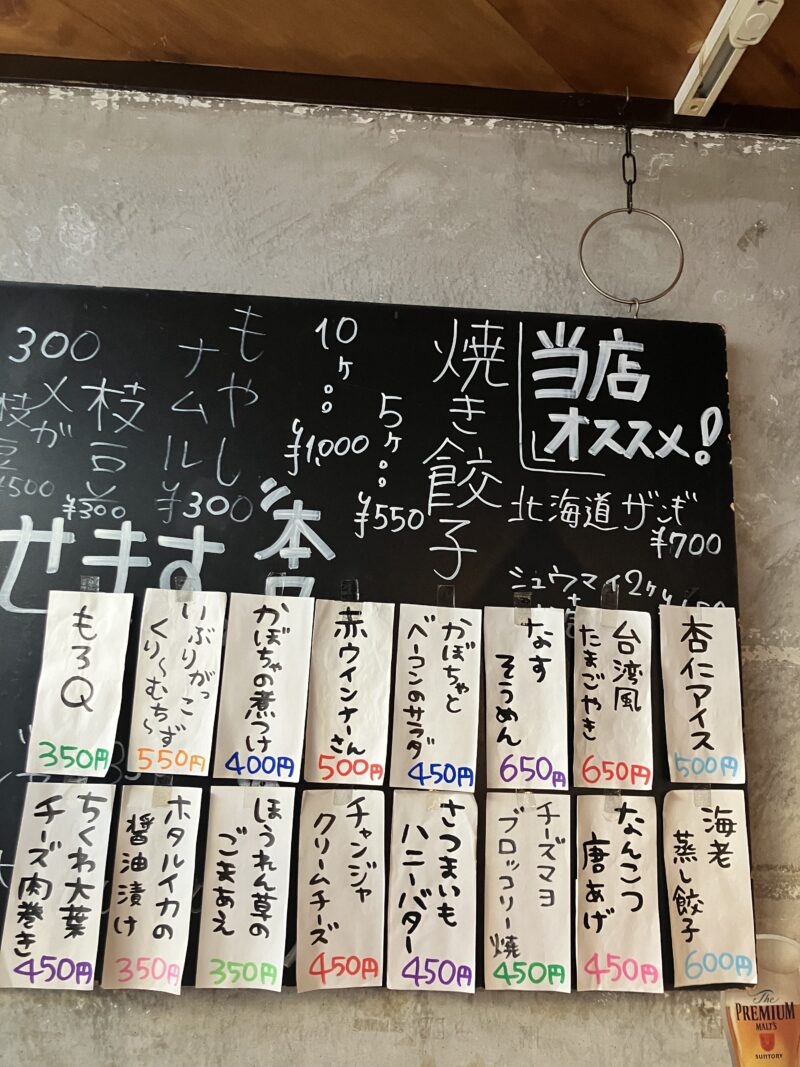 当店
オススメ!
北海道ザンギ
¥700
シュウマイ2ヶ
焼き餃子
5ヶ。。
¥550
10ヶ。。
¥1,000
もやし
ナムル
¥300
枝豆
¥300
300
メガ
枝豆
¥500
せます
杏仁アイス
500円
台湾風
たまごやき
650円
なす
そうめん
650円
かぼちゃと
ベーコンのサラダ
450円
赤ウインナーさん
500円
かぼちゃの煮つけ
400円
いぶりがっこ
くり〜むちず
550円
もろQ
350円
海老
蒸し餃子
600円
なんこつ
唐あげ
450円
チーズマヨ
ブロッコリー焼
450円
さつまいも
ハニーバター
450円
チャンジャ
クリームチーズ
450円
ほうれん草の
ごまあえ
350円
ホタルイカの
醤油漬け
350円
ちくわ大葉
チーズ肉巻き
450円
The
PREMIUM
MALT'S
SUNTORY